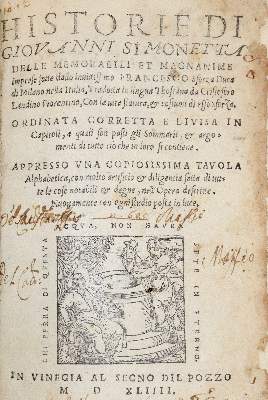 HISTORIE DI
GIOVANNI SIMONETTA
DELLE MEMORABILI ET MAGNANIME
imprese fatte dallo inuittissimo FRANCESCO Sforza Duca
di Milano nella Italia, & tradotta in lingua Thoscana da Christoforo
Landino Fiorentino, Con la vita, & costumi di esso sforza.
ORDINATA CORRETTA E DIVISA IN
Capitoli, a quali son posti gli Sommarii, & argo-
menti di tutto ciò che in loro si contiene.
APPRESSO VNA COPIOSISSIMA TAVOLA
Alphabetica, con molto artificio & diligencia fatta di tut-
te le cose notabili & degne, nell'Opera descritte.
Nuouamente con ogni studio posta in luce.
ACQVA, NON HAVRA
CHI BERRA DI QVESTA
SETE IN ETERNO
IN VINEGIA AL SEGNO DIL POZZO
M D XLIIII.